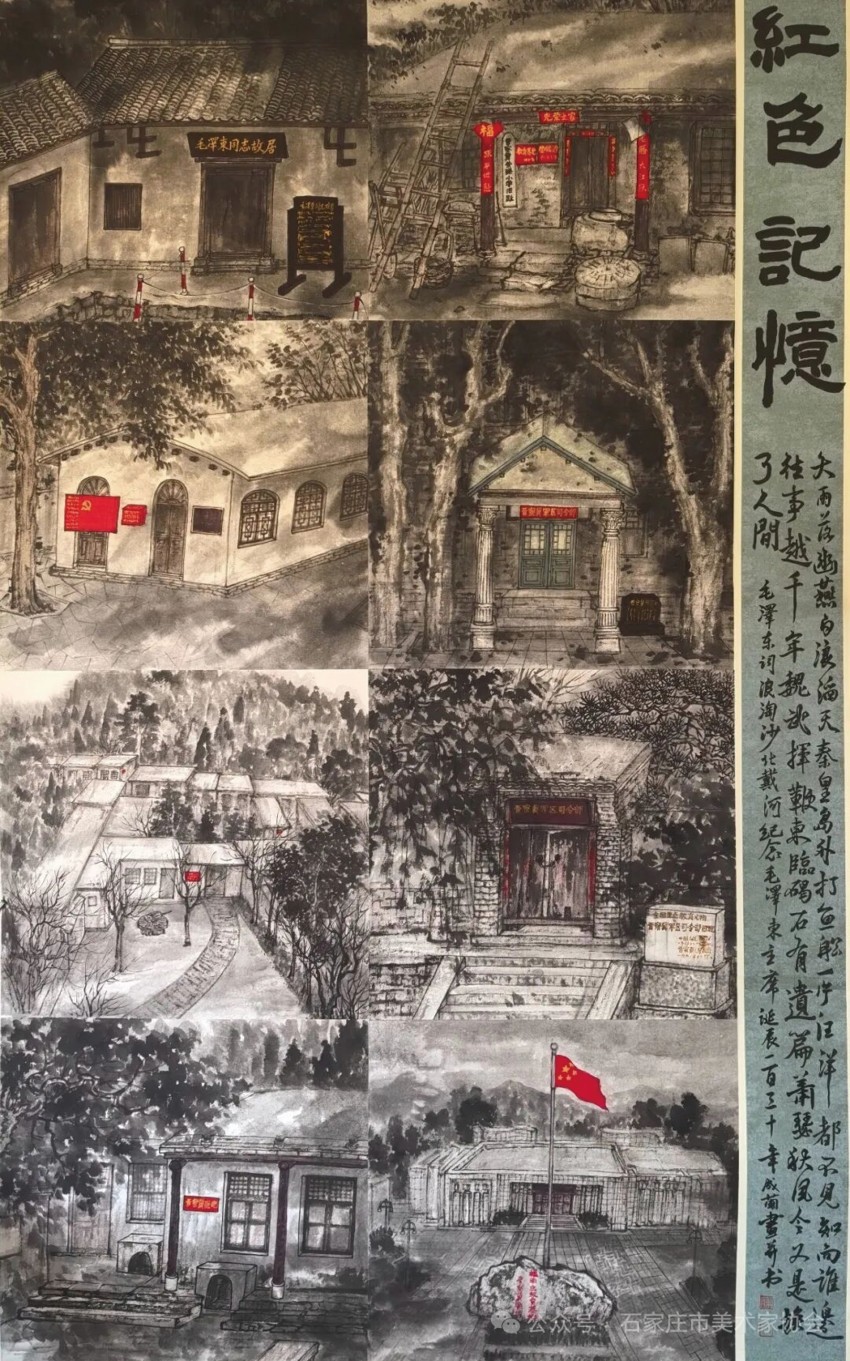 紅色記憶
大雨落幽燕白浪滔天秦皇島外打魚船一片汪洋都不見知向誰邊
往事越千年魏武揮鞭東臨碣石有遺篇蕭瑟秋風今又是換
了人間
毛澤东词浪淘沙北戴河紀念毛澤东主席诞辰一百三十年畫并书
毛澤東同志故居
光荣之家
福
晋察冀军区司令部
晋察冀军区司令部
公众号 · 石家庄市美术家协会